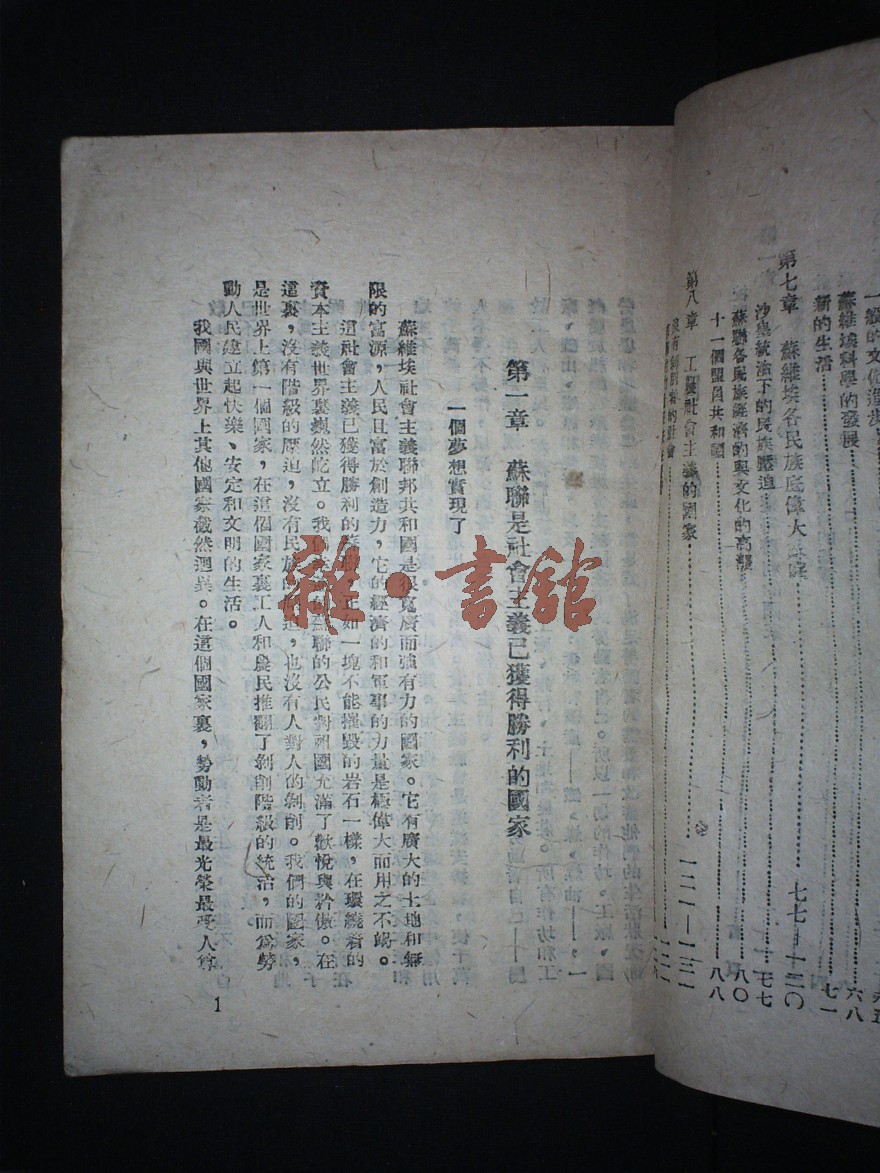 一般的文化進步
蘇維埃科學的發展……六八
新的生活……七一
第七章　蘇維埃各民族底偉大……七七—一二〇
沙皇統治下的民族壓迫……七七
蘇聯各民族經濟的與文化的高漲……八〇
十一個盟員共和國……八八
第八章　工農社會主義的國家……一二一—一三一
沒有剝削者的社會……一二一
第一章　蘇聯是社會主義已獲得勝利的國家
一個夢想實現了
蘇維埃社會主義聯邦共和國是很寬廣而強有力的國家。它有廣大的土地和無
限的富源，人民且富於創造力，它的經濟的和軍事的力量是極偉大而用之不竭。
這社會主義已獲得勝利的蘇聯，正如一塊不能摧毀的岩石一樣，在環繞着的
資本主義世界裏巍然屹立。我們蘇聯的公民對祖國充滿了歡悅與矜傲。在
這裏，沒有階級的壓迫，沒有民族的壓迫，也沒有人對人的剝削。我們的國家，
是世界上第一個國家，在這個國家裏工人和農民推翻了剝削階級的統治，而爲勞
動人民建立起快樂、安定和文明的生活。
我國與世界上其他國家截然迥異。在這個國家裏，勞動者是最光榮最受人尊
1
雜·書館